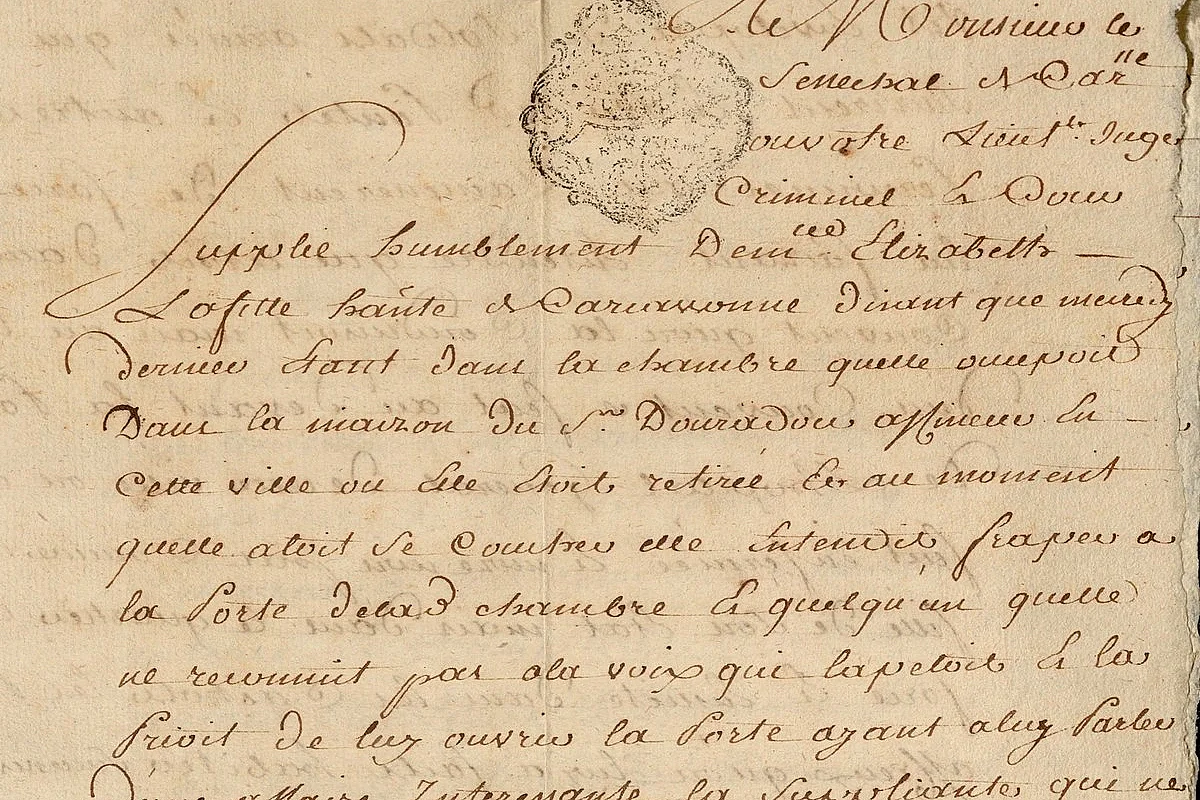 A Monsieur le
Senechal de Car^lle
ou votre Lieut^t Juge
Criminel En
Supplie humblement Dem^lle Elizabeth
Lafitte hãnte de Carcassonne disant que mercredy
dernier Etant dans la chambre quelle occupoit
Dans la maison du S^r Douradou en
Cette ville ou Elle Etoit retirée Et au moment
quelle aloit se Coucher elle Entendit fraper a
la Porte delad chambre Et quelqu'un quelle
ne reconnut pas ala voix qui lapeloit Et la
Prioit de luy ouvrir la Porte ayant a luy Parler
d'une affaire Interessante la Supliante qui ne